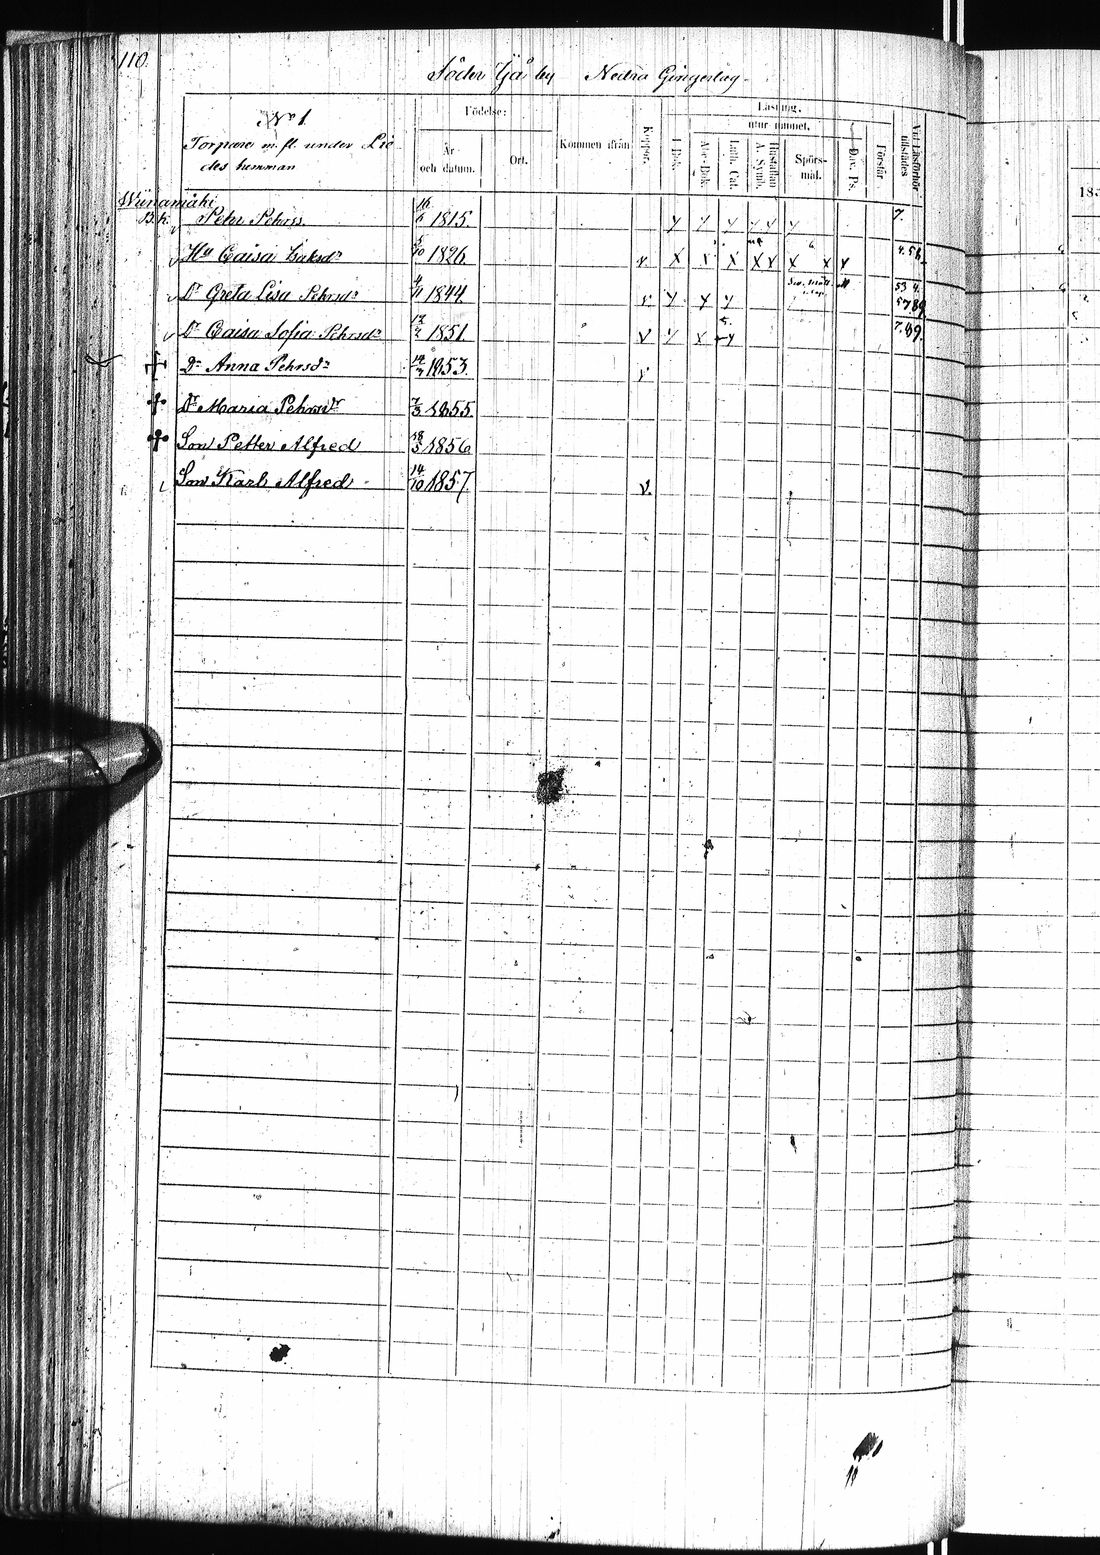 110
Söder Gårby Nedra Gingerlag
No 1.
Torpare m. fl. under
des hemman
Födelse:
År och datum.
Ort.
Kommen ifrån
Koppor.
Läsning,
utur minnet,
I Bok.
Abc-Bok.
Luth. Cat.
A. Symb.
Hustaflan
Spörs-mål.
Dav. Ps.
Förstår.
Vid Läsförhör tillstädes
183
Wiinamäki
B. k. Petter Pehrss. 16/6 1815. 7.
Hu Caisa Isaksdr 5/10 1826. v. 4.56.
Dr Greta Lisa Pehrsdr 4/11 1844. v 53 4. 5789
Dr Caisa Sofia Pehrsdr 12/2 1851. v 7.89.
Dr Anna Pehrsdr 14/7 1853. v
Dr Maria Pehrsdr 7/3 1855.
Son Petter Alfred 18/3 1856
Son Karl Alfred 14/10 1857 v.